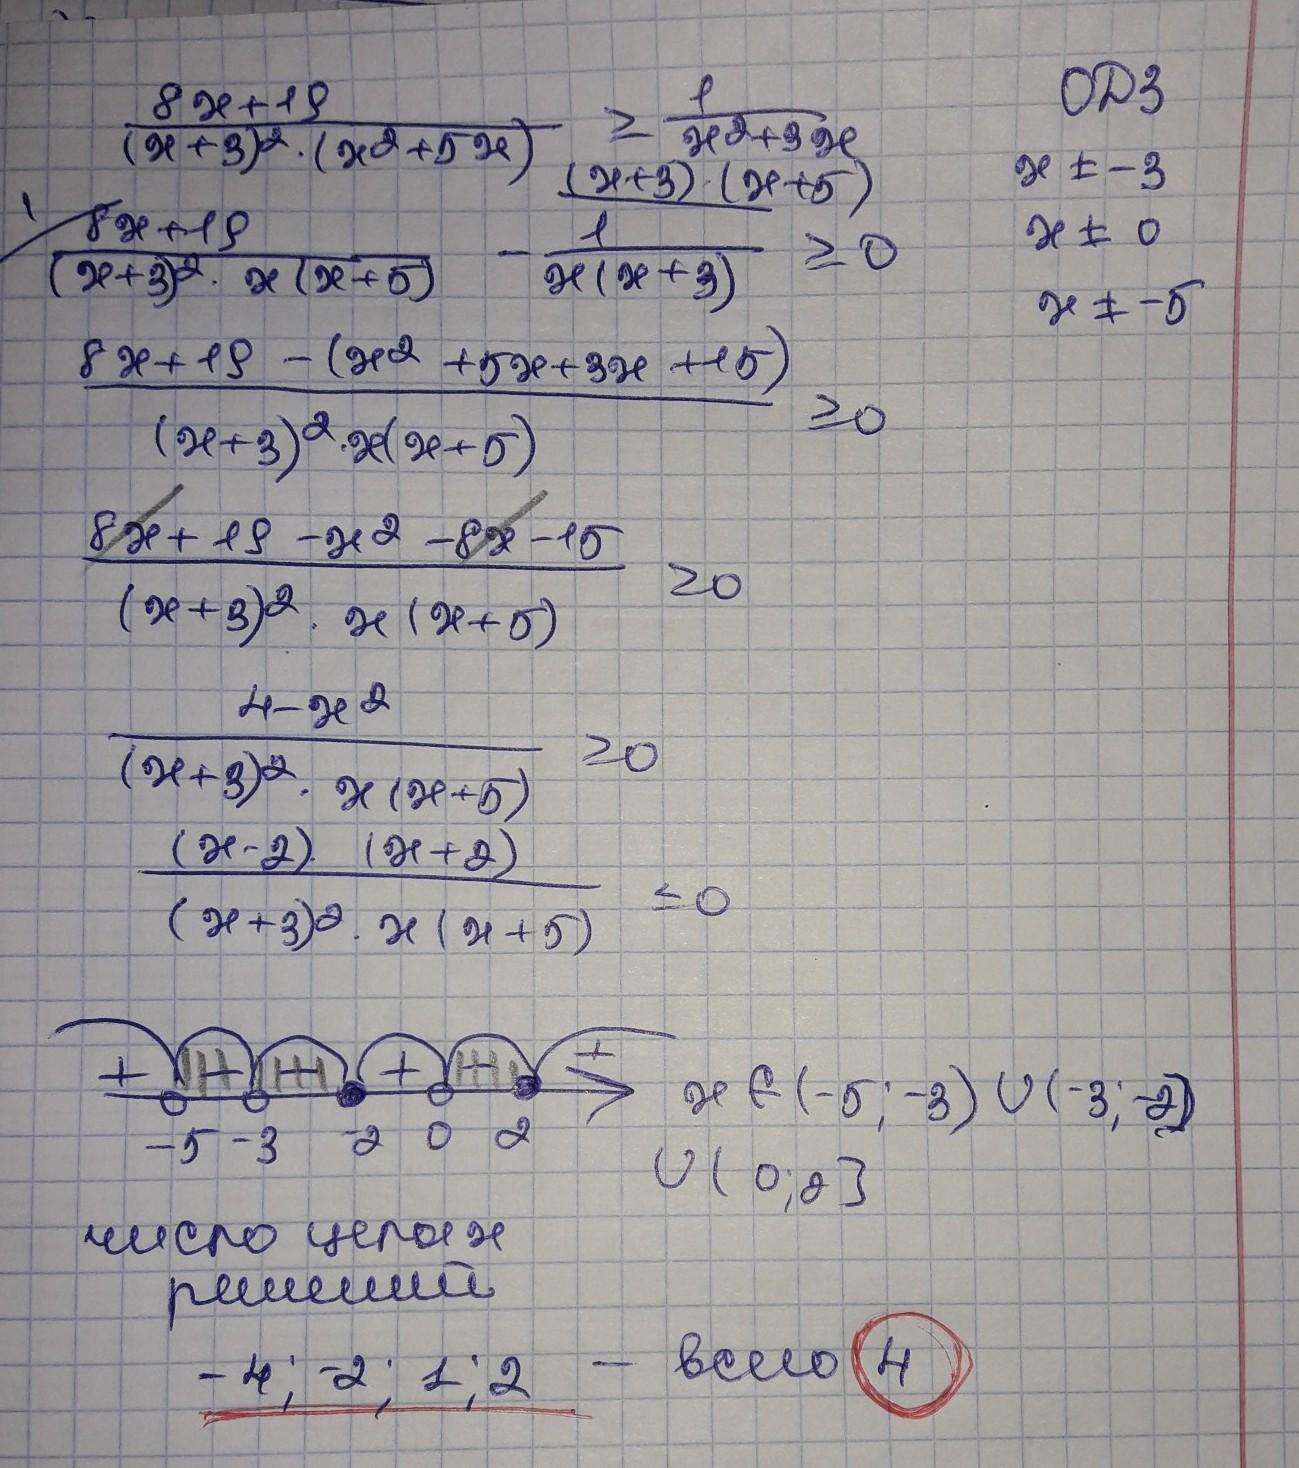 (8x+19)/((x+3)²·(x²+5x)) ≥ 1/(x²+3x)
ОДЗ
x ≠ -3
x ≠ 0
x ≠ -5
1 (x+3)·(x+5)
(8x+19)/((x+3)²·x(x+5)) - 1/(x(x+3)) ≥ 0
(8x+19-(x²+5x+3x+15))/((x+3)²·x(x+5)) ≥0
(8x+19-x²-8x-15)/((x+3)²·x(x+5)) ≥0
(4-x²)/((x+3)²·x(x+5)) ≥0
((x-2)·(x+2))/((x+3)²·x(x+5)) ≤0
+ - - + - +
-5 -3 -2 0 2
x ∈ (-5; -3) ∪ (-3; -2]
∪ (0; 2]
число целых
решений
-4; -2; 1; 2 – всего 4